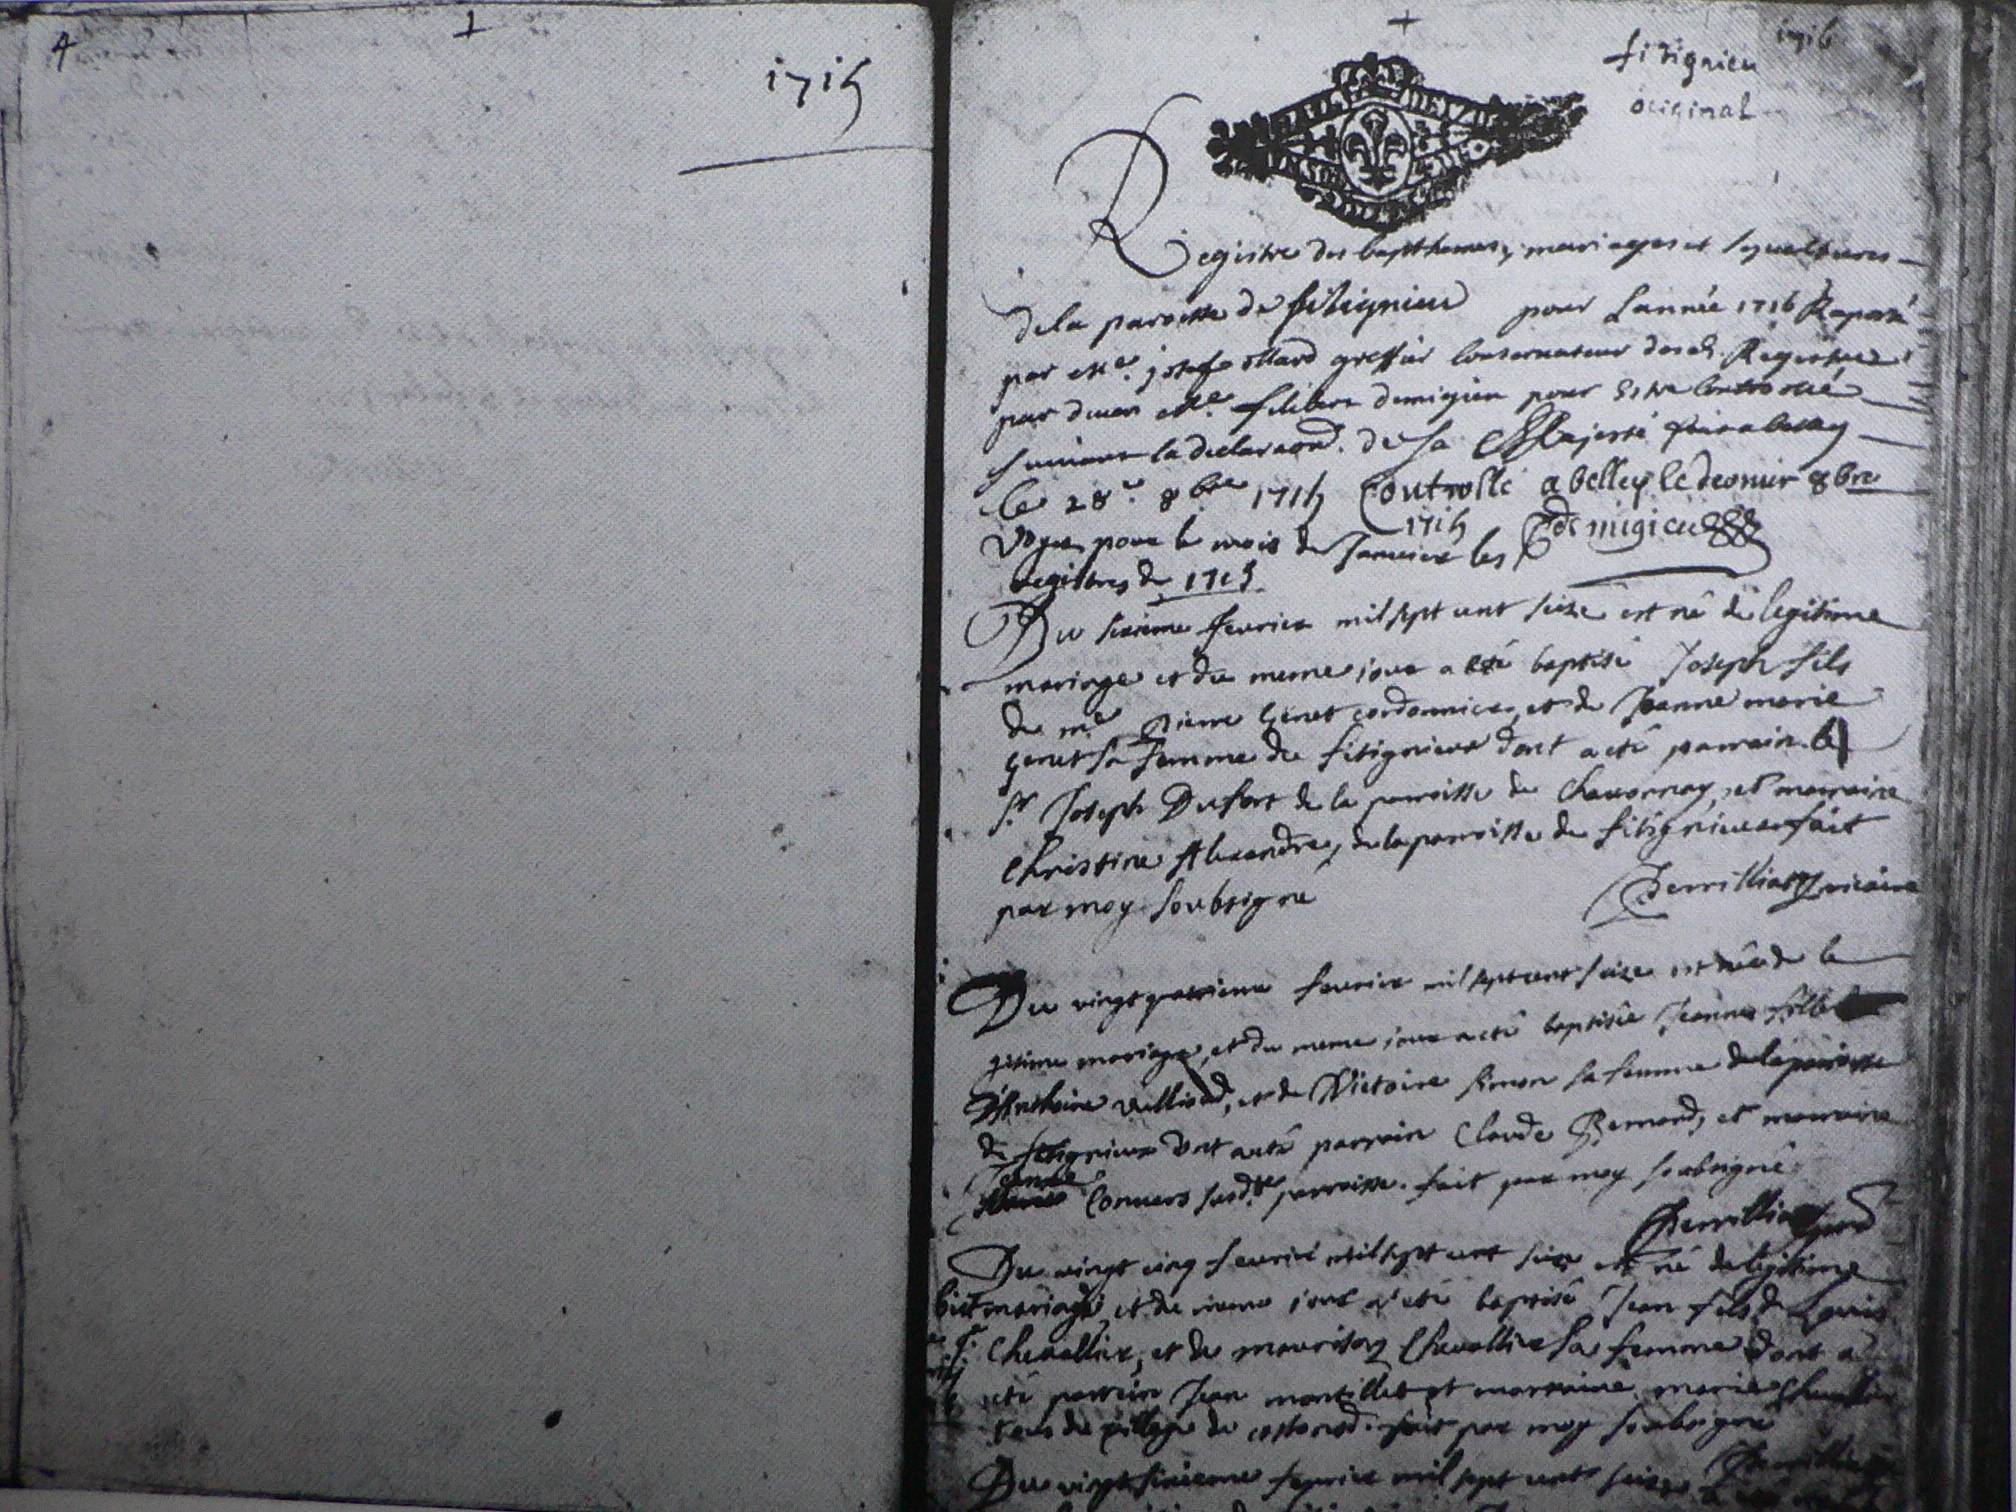 4
1715
1716
fitignieu
original
Registre des bapthemes, mariages et sepueltures
de la paroisse de fitignieu pour Lannée 1716 Paraphé
par Me. joseph greffier Conservateur desd. Registres
par devan Me. filibert demigieu pour Estre Controollé
suivant la declaraon. de Sa Majesté
le 28e. 8bre 1715 Controllé a belley le dernier 8bre
1715 demigieu
Voyes pour le mois de Janvier les
registres de 1715
Du sixieme fevrier mil sept cent seize est né de legitime
mariage et du meme jour a eté baptisé Joseph fils
de me pierre Genet cordonnier, et de Jeanne marie
genet sa femme de fitignieux dont a eté parrain le
Sr. Joseph Dufort de la parroisse de Chavornay, et marraine
Christine Alexandre, de la parroisse de fitignieux fait
par moy soubsigné
Perrilliat vicaire
Du vingt quatrieme fevrier mil sept cent seize est née de le
gitime mariage, et du meme jour a eté baptisée Jeanne fille
d'Anthoine, et de Victoire Simon sa femme de la paroisse
de fitignieux dont a eté parrain Claude Bernard, et marraine
Jeanne
Convers susdte parroisse. fait par moy soubsigné
Perrilliat
Du vingt cinq fevrier mil sept cent seize est né de legitime
mariage, et du meme jour a eté baptisé Jean fils de Louis
Chevallier, et de Chevallier sa femme dont a
eté parrain Jean montillet et marraine marie
tous du village de fait par moy soubsigné
Perrilliat
Du vingt sixieme fevrier mil sept cent seize